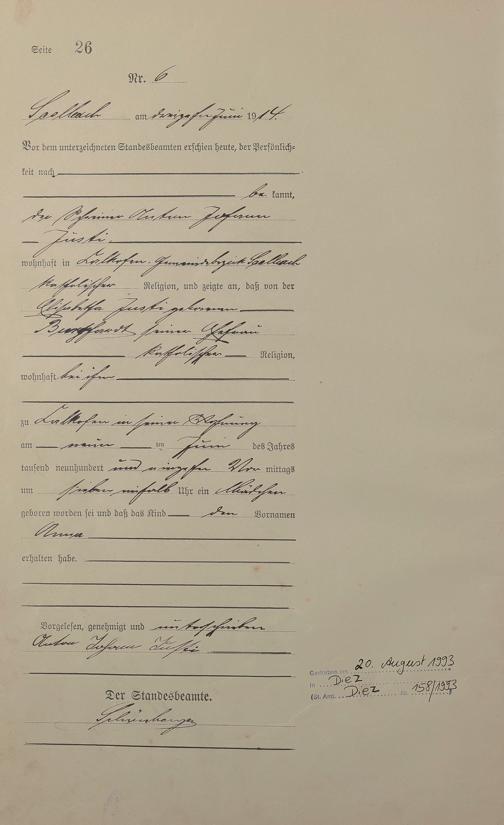 Seite 26
Nr. 6
Saelbach am dreizehn Juni 1914.
Vor dem unterzeichneten Standesbeamten erschien heute, der Persönlich-
keit nach
be kannt,
der Schreiner Anton Johann
Justi
wohnhaft in Kalkofen, Gemeindebezirk Saelbach
katholischer Religion, und zeigte an, daß von der
Elisabetha Justi geborenen
Burghardt seiner Ehefrau
katholischer Religion,
wohnhaft bei ihm
zu Kalkofen in seiner Wohnung
am neun ten Juni des Jahres
tausend neunhundert und vierzehn Vor mittags
um sieben einhalb Uhr ein Mädchen
geboren worden sei und daß das Kind den Vornamen
Anna
erhalten habe.
Vorgelesen, genehmigt und unterschrieben
Anton Johann Justi
Der Standesbeamte.
Gestorben am 20. August 1993
in Diez
(St. Amt Diez Nr. 158/1993